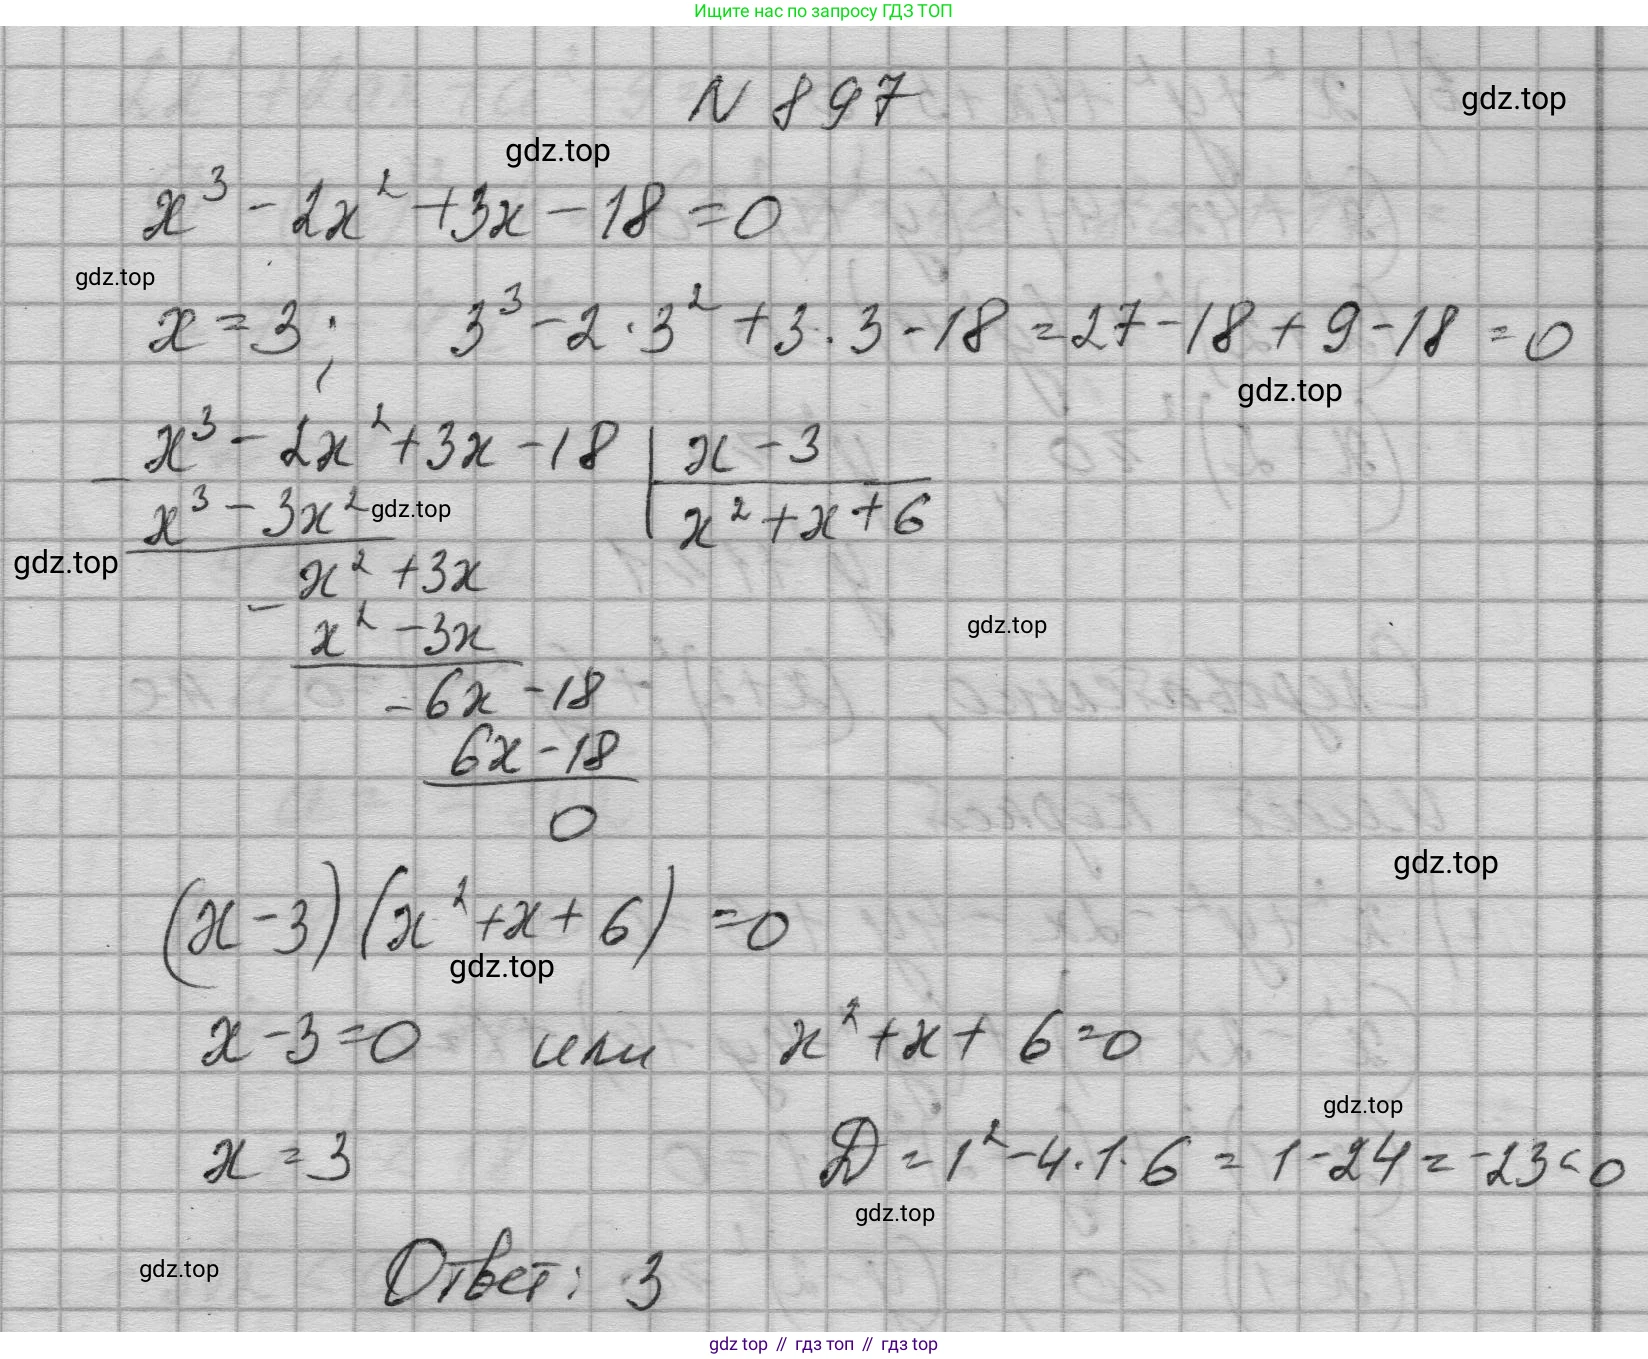 Ищите нас по запросу ГДЗ ТОП
N 897
gdz.top
gdz.top
x³ - 2x² + 3x - 18 = 0
gdz.top
x = 3; 3³ - 2 · 3² + 3 · 3 - 18 = 27 - 18 + 9 - 18 = 0
gdz.top
- x³ - 2x² + 3x - 18 | x - 3
x³ - 3x² | x² + x + 6
gdz.top
gdz.top
- x² + 3x
x² - 3x
gdz.top
- 6x - 18
6x - 18
0
gdz.top
(x - 3)(x² + x + 6) = 0
gdz.top
x - 3 = 0 или x² + x + 6 = 0
gdz.top
x = 3 D = 1² - 4 · 1 · 6 = 1 - 24 = -23 < 0
gdz.top
gdz.top
Ответ: 3
gdz top // гдз топ // гдз top